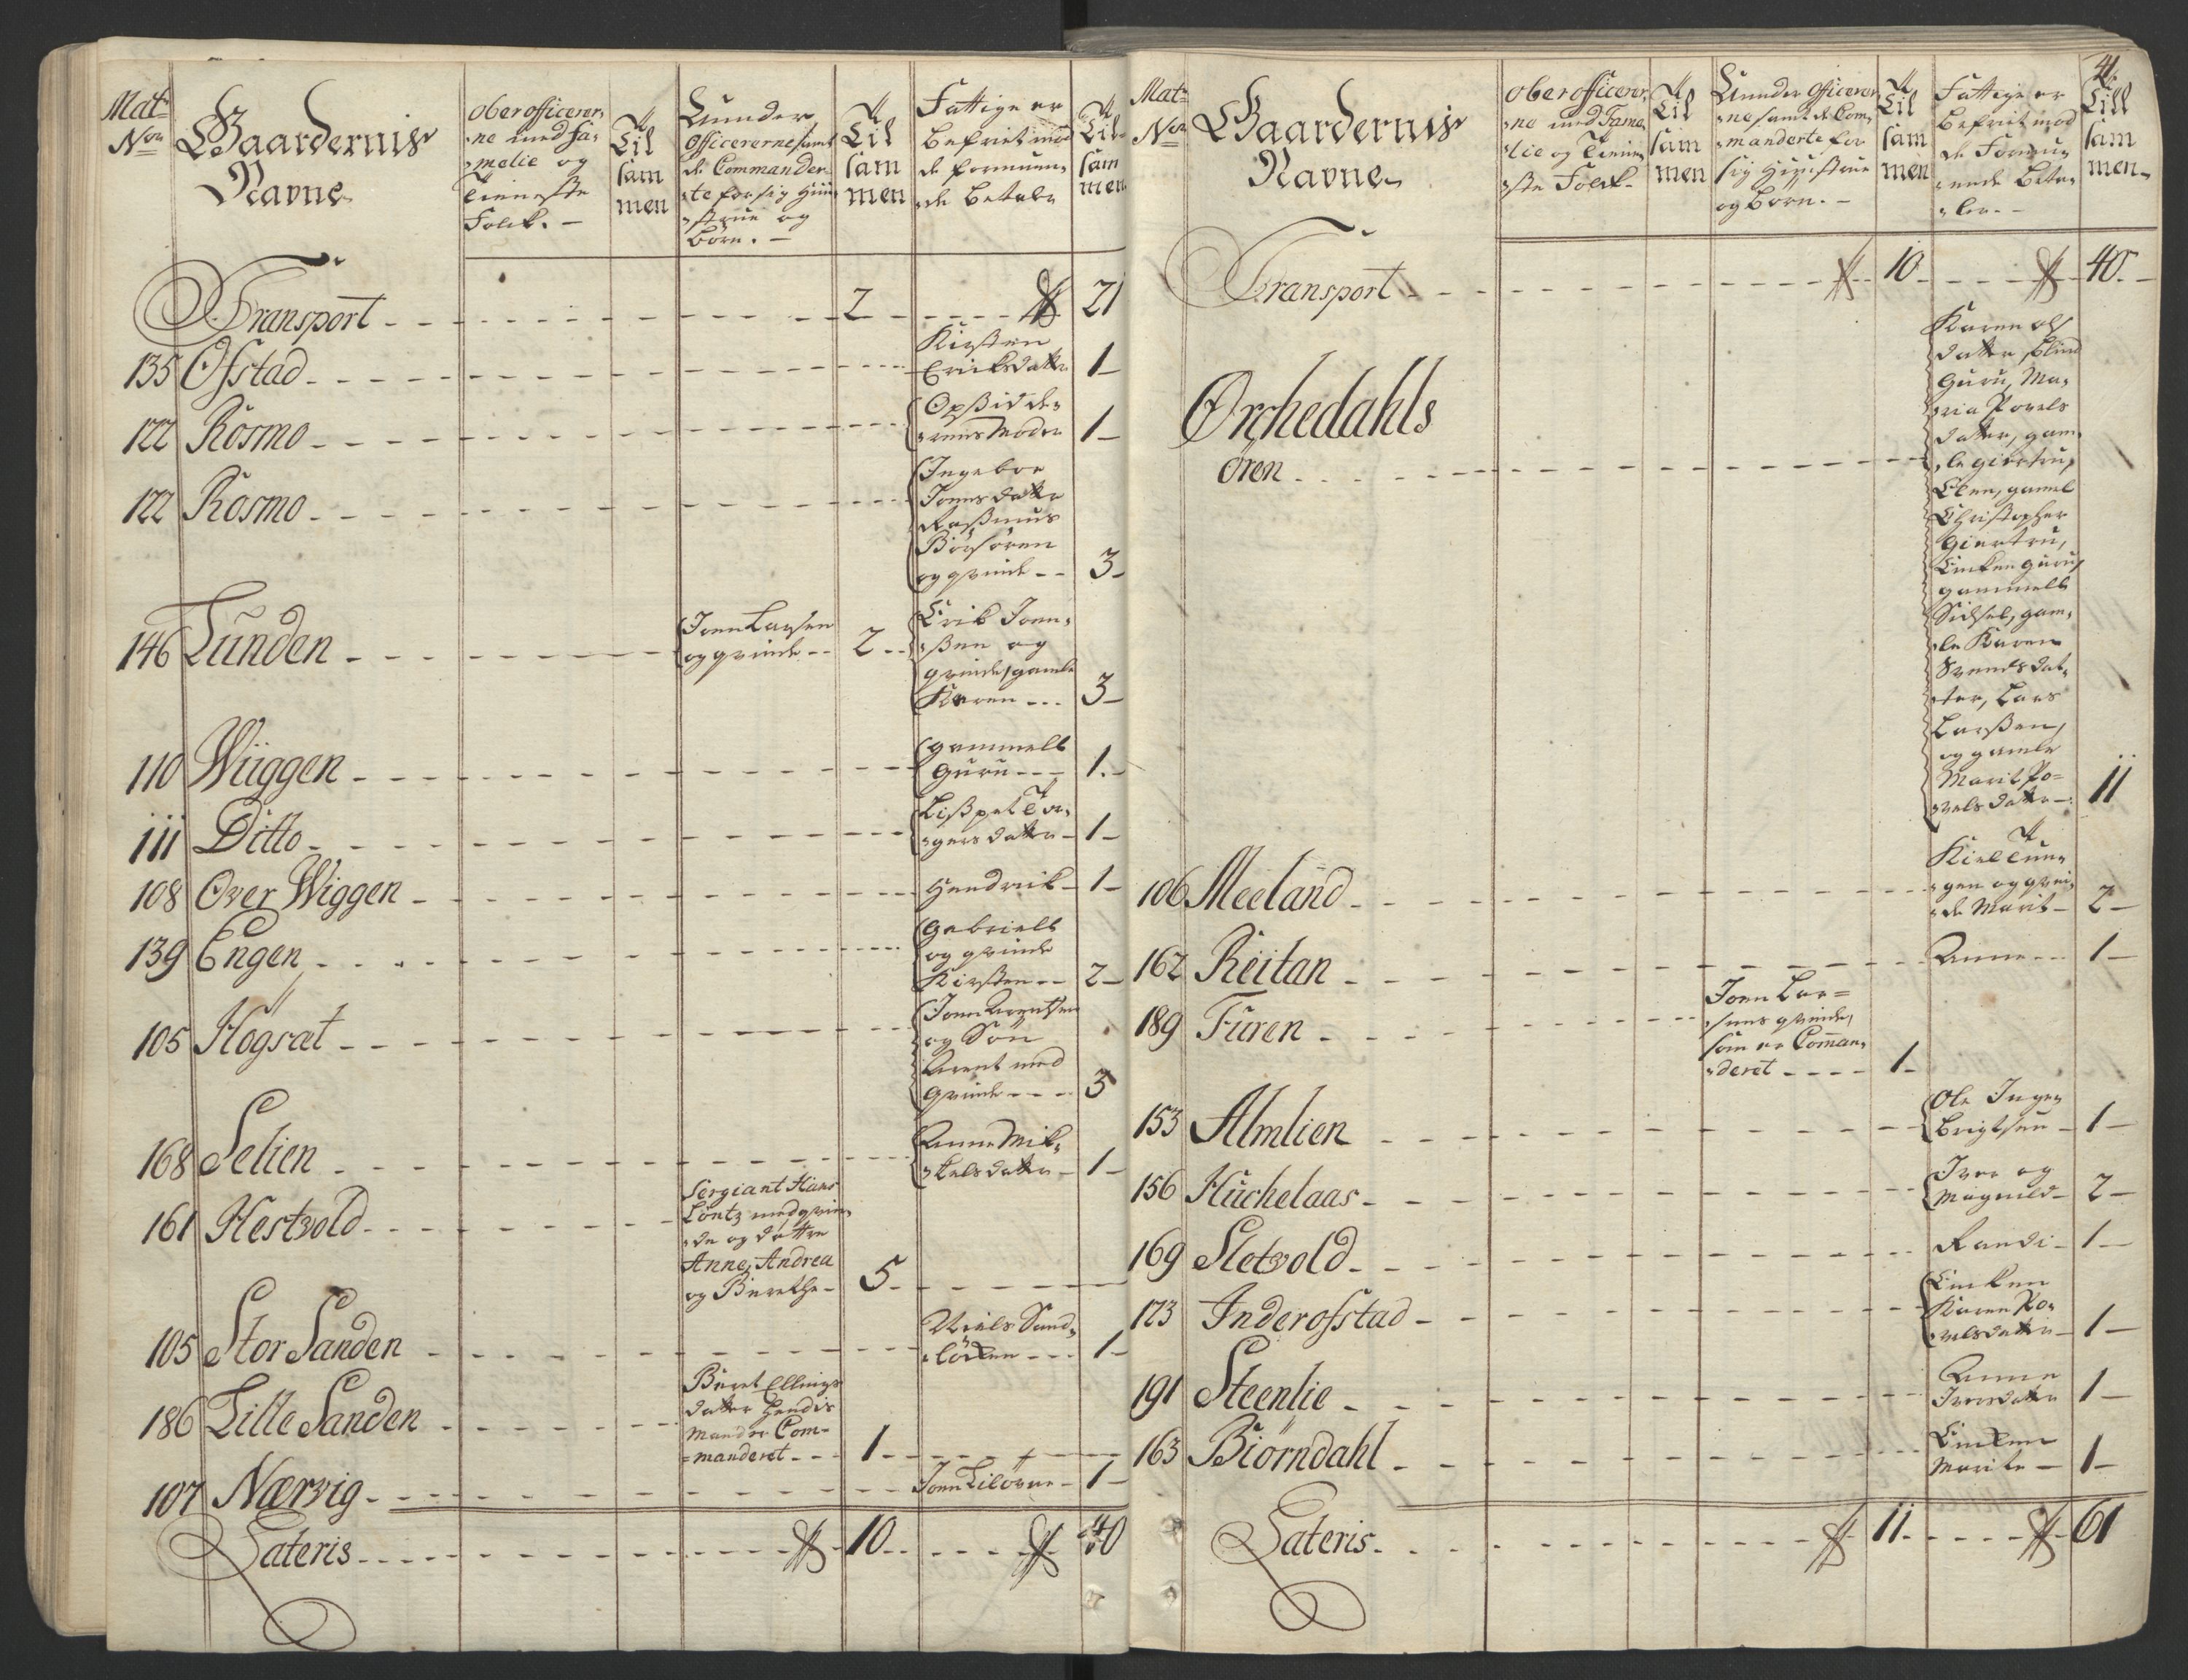 Mat:
No:
Gaardernis
Navne
Oberofficerer,
ne med fa,
melie og
tieneste
Folck. -
Til
sam
men
Under
Officererne samt
de Commander,
te for sig Hu,
strue og
Børn. -
Til
sam
men
Fattige er
befriet mod
de formuen,
de betaler
Til
sam
men
Transport
2
21
135 Ofstad
Kirsten
Ericksdatter
1
122 Rosmo
Opsidde,
rens Moder
1
122 Rosmo
Ingebor
Joensdatter
Rasmus
Börsören
og qvinde
3
146 Lunden
Joen Larsen
og qvinde
2
Erik Joen,
ßen og
qvinde, gamle
Karen
3
110 Wiiggen
gammell
Guru
1
111 Ditto
Lißpet Tor,
gersdatter
1
108 Over Wiggen
Hendrick
1
139 Engen
Gabriell
og qvinde
Kirsten
2
105 Hogsat
Joen Arentsen
og Søn
Arent med
qvinde
3
168 Selien
Anne Mik,
kelsdatter
1
161 Hestvold
Sergiant Hans
Löntz med qvin,
de og døttre
Anne, Andrea
og Berethe
5
105 Stor Sanden
Niels Sand,
löcken
1
186 Lille Sanden
Beret Ellings
datter hendis
Mand er Com,
manderet
1
107 Nærvig
Joen
1
Lateris
10
40
41
Mat:
No:
Gaardernis
Navne
Oberofficerer,
ne med Fame,
lie og Tiene,
ste Folck.
Til
sam
men
Under Officerer,
ne samt de Com,
manderte for
sig Hustrue
og Børn. -
Til
sam
men
Fattige er
befriet mod
de Formu,
ende beta,
ler. -
Till
sam
men
Transport
10
40
Orchedahls
ören
Karen Ols
datter, blind
Guru, Ma,
ria Povels
datter, gam,
le Giertru,
Elen, gamel
Christopher
Giertru,
Encken Guru,
gammell
Sidsel, gam,
le Karen
Svendsdat,
ter, Lars
Larßen,
og gamle
Marit Po=
velsdatter
11
106 Meeland
og qvin,
de Marit
2
162 Reitan
Anne
1
189 Furen
Joen Lar=
sens qvinde,
som er Coman,
deret
1
153 Almlien
Ole Inge,
brigtsen
1
156 Huchelaas
Iver og
Magnild
2
169 Sletvold
Randi
1
173 Inderofstad
Encken
Karen Po,
velsdatter
1
191 Steenlie
Anne
Iversdatter
1
163 Biörndahl
Encken
Marite
1
Lateris
11
61